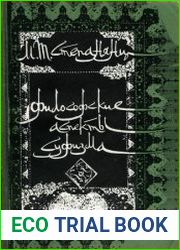 М.Т.Степанянц
Философские
аспекты
суфизма
ECO TRIAL BOOK